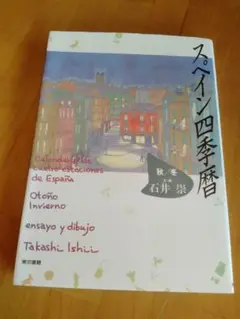 スペイン四季暦
秋／冬
石井 崇
Calendario de las
cuatro estaciones
de España
Otoño
Invierno
ensayo y dibujo
Takashi Ishii